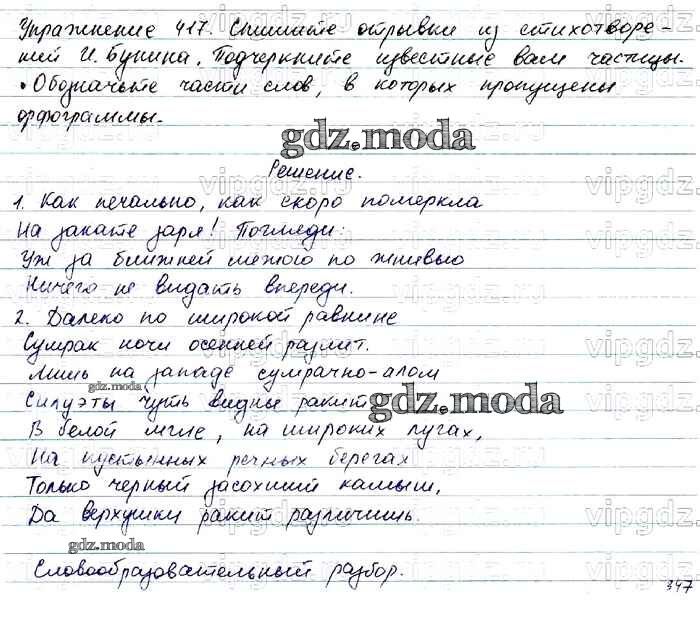 Упражнение 417. Спишите отрывки из стихотворе-
ний И. Бунина. Подчеркните известные вам частицы.
• Обозначьте части слов, в которых пропущены
орфограммы.
gdz.moda
Решение.
1. Как печально, как скоро померкла
На закате заря! Погляди:
Уж за ближней межою по жнивью
Ничего не видать впереди.
2. Далеко по широкой равнине
Сумрак ночи осенней разлит.
Лишь на западе сумрачно-алом
gdz.moda
Силуэты чуть видны ракит
gdz.moda
В белой мгле, на широких лугах,
На пустынных речных берегах
Только черный засохший камыш,
Да верхушки ракит различишь.
gdz.moda
Словообразовательный разбор.
347